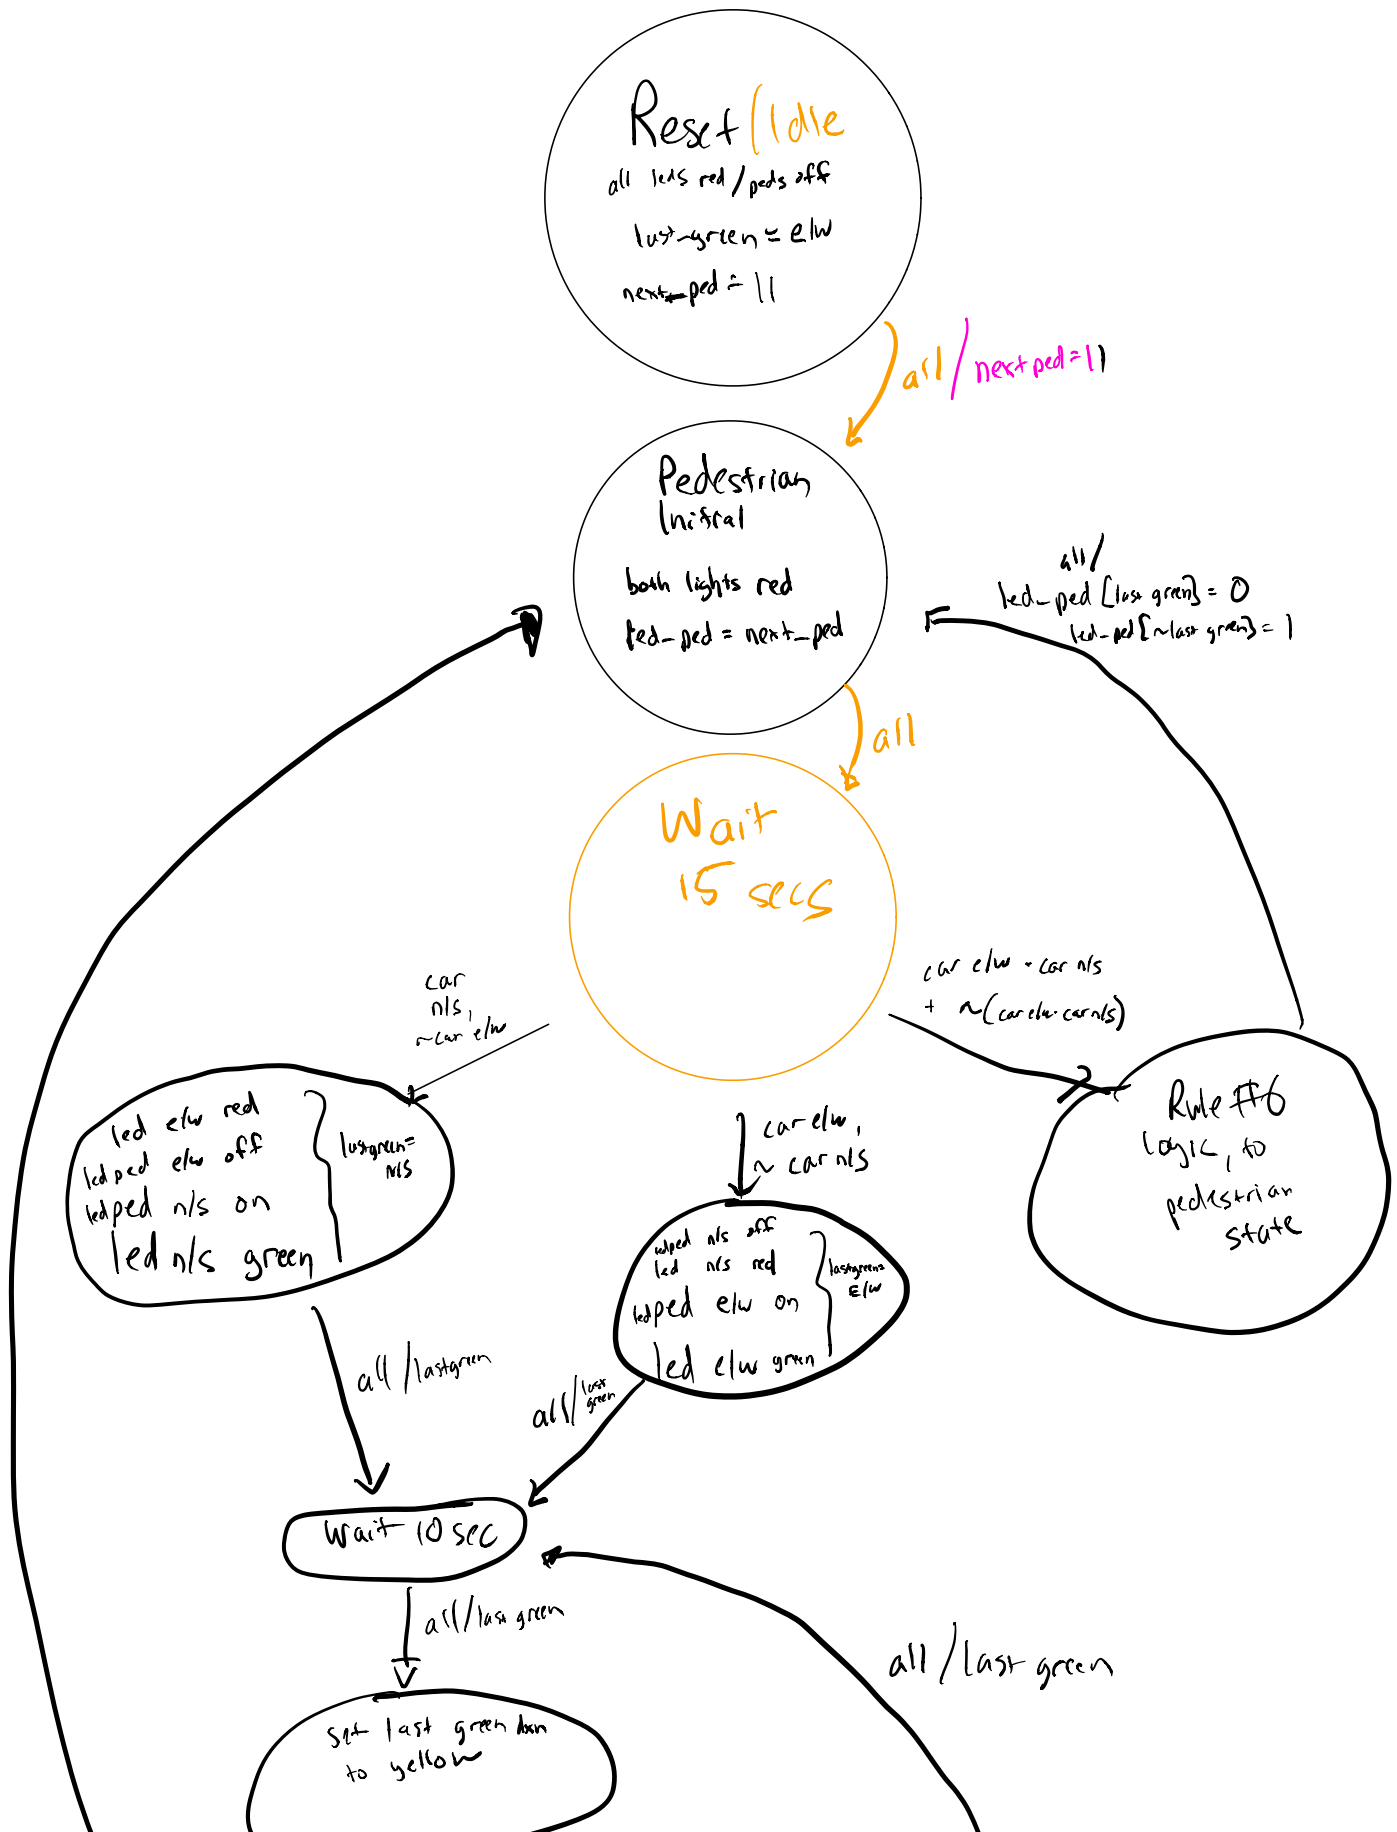 Reset/Idle
all leds red/peds off
last-green = e/w
next_ped = 11
all/next ped = 11
Pedestrian
Initial
both lights red
led_ped = next_ped
all/
led_ped [last green] = 0
led_ped [~last green] = 1
all
Wait
15 secs
car
n/s,
~car e/w
car e/w · car n/s
+ ~(car e/w · car n/s)
led e/w red
led ped e/w off
led ped n/s on
led n/s green
lastgreen=
n/s
car e/w,
~ car n/s
Rule #6
logic, to
pedestrian
state
ledped n/s off
led n/s red
ledped e/w on
led e/w green
lastgreen=
E/w
all/lastgreen
all/last
green
Wait 10 sec
all/last green
all/last green
set last green
to yellow